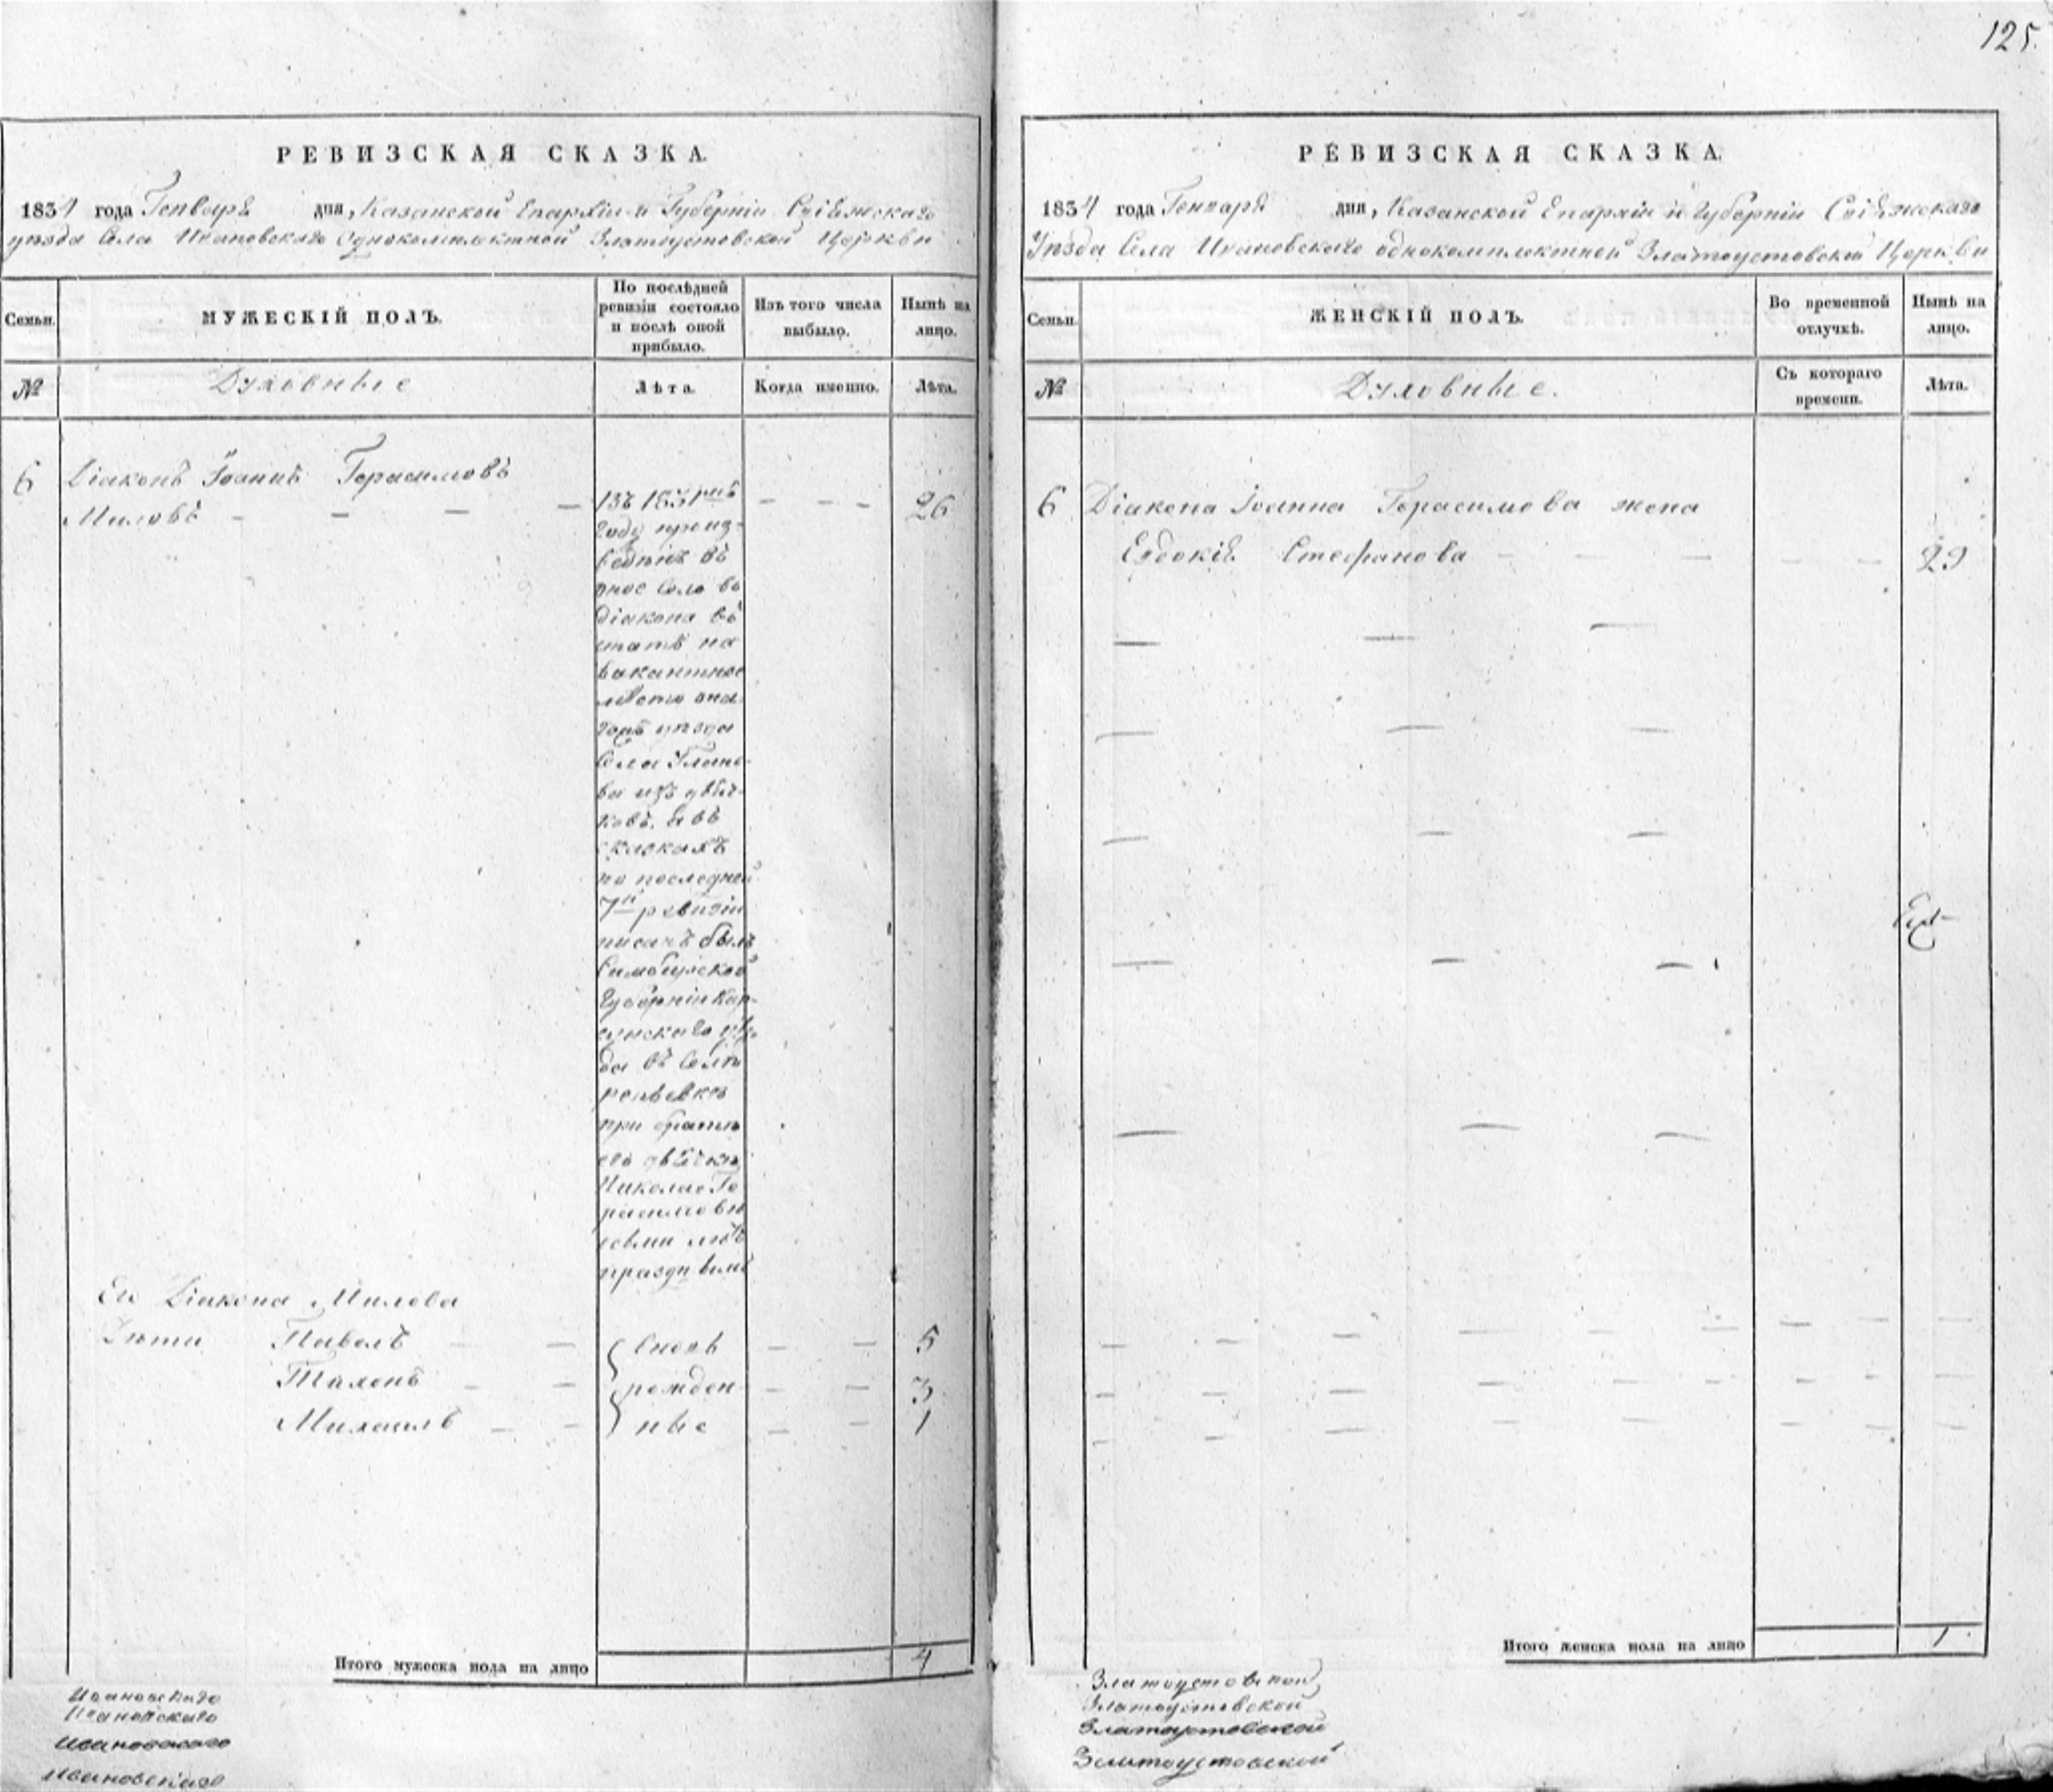 125.
РЕВИЗСКАЯ СКАЗКА.
1834 года Генваря дня, Казанской Епархіи и Губерніи Свіяжскаго
уезда Села Ивановскаго однокомплектной Златоустовской Церкви
Семьи.
МУЖЕСКІЙ ПОЛЪ.
По послѣдней ревизіи состояло и послѣ оной прибыло.
Изъ того числа выбыло.
Нынѣ на лицо.
№
Духовные
Лѣта.
Когда именно.
Лѣта.
6 Діаконъ Іоаннъ Герасимовъ
Миловъ — — — —
въ 1831мъ — — — 26
году произ-
веденъ въ
оное село во
діакона въ
штатъ на
вакантное
место
тогожъ уезда
Села
ва изъ дьяч-
ковъ, а въ
сказкахъ
по последней
7й ревизіи
писанъ былъ
Симбирской
Губерніи Кар-
сунскаго уез-
да въ Селе
при брате
его дьячке
Николае Ге
расимове
семи летъ
Его Діакона Милова
Дети Павелъ — — вновь — — 5
Тихонъ — — рожден — — 3
Михаилъ — — ные — — 1
Итого мужеска пола на лицо 4
Ивановскаго
Ивановскаго
Ивановскаго
Ивановскаго
РЕВИЗСКАЯ СКАЗКА.
1834 года Генваря дня, Казанской Епархіи и Губерніи Свіяжскаго
Уезда Села Ивановскаго однокомплектной Златоустовской Церкви
Семьи.
ЖЕНСКІЙ ПОЛЪ.
Во временной отлучкѣ.
Нынѣ на лицо.
№
Духовные.
Съ котораго времени.
Лѣта.
6 Діакона Іоанна Герасимова жена
Евдокія Стефанова — — — — — 29
Итого женска пола на лицо 1
Златоустовской
Златоустовской
Златоустовской
Златоустовской